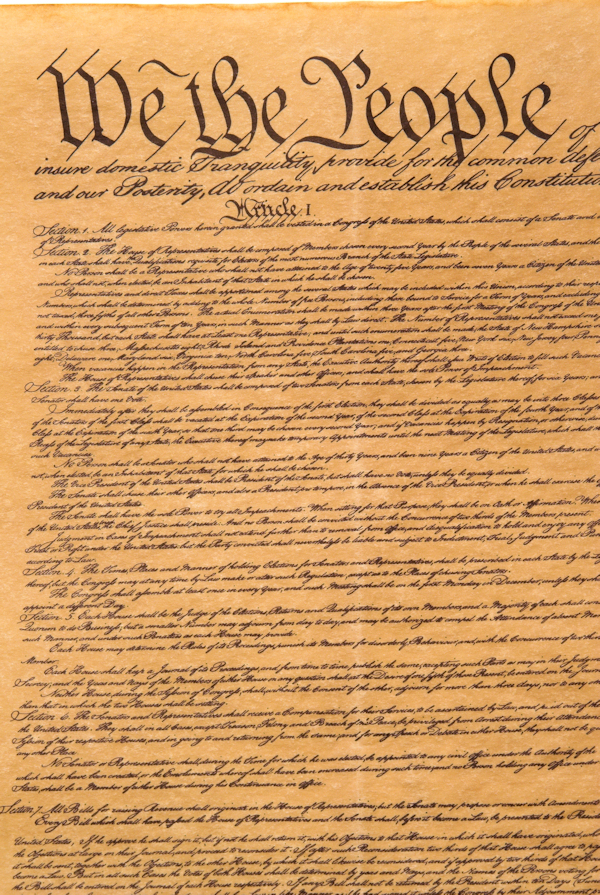 We the People of
insure domestic Tranquility, provide for the common defe
and our Posterity, do ordain and establish this Constitutio
Article. I.
Section. 1. All legislative Powers herein granted shall be vested in a Congress of the United States, which shall consist of a Senate and
of Representatives.
Section. 2. The House of Representatives shall be composed of Members chosen every second Year by the People of the several States, and the
in each State shall have Qualifications requisite for Electors of the most numerous Branch of the State Legislature.
No Person shall be a Representative who shall not have attained to the Age of twenty five Years, and been seven Years a Citizen of the United
and who shall not, when elected, be an Inhabitant of that State in which he shall be chosen.
Representatives and direct Taxes shall be apportioned among the several States which may be included within this Union, according to their
Numbers, which shall be determined by adding to the whole Number of free Persons, including those bound to Service for a Term of Years, and
not taxed, three fifths of all other Persons. The actual Enumeration shall be made within three Years after the first Meeting of the Congress of the
and within every subsequent Term of ten Years, in such Manner as they shall by Law direct. The Number of Representatives shall not exceed one
thirty Thousand, but each State shall have at Least one Representative; and until such enumeration shall be made, the State of New Hampshire
entitled to chuse three, Massachusetts eight, Rhode Island and Providence Plantations one, Connecticut five, New York six, New Jersey four,
eight, Delaware one, Maryland six, Virginia ten, North Carolina five, South Carolina five, and Georgia
When vacancies happen in the Representation from any State, the Executive Authority thereof shall issue Writs of Election to fill such
The House of Representatives shall chuse their Speaker and other Officers; and shall have the sole Power of Impeachment.
Section. 3. The Senate of the United States shall be composed of two Senators from each State, chosen by the Legislature thereof, for six Years;
Senator shall have one Vote.
Immediately after they shall be assembled in Consequence of the first Election, they shall be divided as equally as may be into three Classes
of the Senators of the first Class shall be vacated at the Expiration of the second Year, of the second Class at the Expiration of the fourth Year, and of
Class at the Expiration of the sixth Year, so that one third may be chosen every second Year; and if Vacancies happen by Resignation, or otherwise,
Recess of the Legislature of any State, the Executive thereof may make temporary Appointments until the next Meeting of the Legislature, which shall
such Vacancies.
No Person shall be a Senator who shall not have attained to the Age of thirty Years, and been nine Years a Citizen of the United States, and
not, when elected, be an Inhabitant of that State for which he shall be chosen.
The Vice President of the United States shall be President of the Senate, but shall have no Vote, unless they be equally divided.
The Senate shall chuse their other Officers, and also a President pro tempore, in the Absence of the Vice President, or when he shall exercise the
President of the United States.
The Senate shall have the sole Power to try all Impeachments. When sitting for that Purpose, they shall be on Oath or Affirmation.
of the United States, the Chief Justice shall preside: And no Person shall be convicted without the Concurrence of two thirds of the Members present.
Judgment in Cases of Impeachment shall not extend further than to removal from Office, and disqualification to hold and enjoy any
Trust or Profit under the United States: but the Party convicted shall nevertheless be liable and subject to Indictment, Trial, Judgment and
according to Law.
Section. 4. The Times, Places and Manner of holding Elections for Senators and Representatives, shall be prescribed in each State by the
thereof; but the Congress may at any time by Law make or alter such Regulations, except as to the Places of chusing Senators.
The Congress shall assemble at least once in every Year, and such Meeting shall be on the first Monday in December, unless they
appoint a different Day.
Section. 5. Each House shall be the Judge of the Elections, Returns and Qualifications of its own Members, and a Majority of each shall
Quorum to do Business; but a smaller Number may adjourn from day to day, and may be authorized to compel the Attendance of absent
such Manner, and under such Penalties as each House may provide.
Each House may determine the Rules of its Proceedings, punish its Members for disorderly Behaviour, and, with the Concurrence of
Member.
Each House shall keep a Journal of its Proceedings, and from time to time publish the same, excepting such Parts as may in their Judgment
Secrecy; and the Yeas and Nays of the Members of either House on any question shall, at the Desire of one fifth of those Present, be entered on the
Neither House, during the Session of Congress, shall, without the Consent of the other, adjourn for more than three days, nor to any
than that in which the two Houses shall be sitting.
Section. 6. The Senators and Representatives shall receive a Compensation for their Services, to be ascertained by Law, and paid out of the
the United States. They shall in all Cases, except Treason, Felony and Breach of the Peace, be privileged from Arrest during their Attendance
Session of their respective Houses, and in going to and returning from the same; and for any Speech or Debate in either House, they shall not be
any other Place.
No Senator or Representative shall, during the Time for which he was elected, be appointed to any civil Office under the Authority of the
which shall have been created, or the Emoluments whereof shall have been encreased during such time; and no Person holding any Office under
States, shall be a Member of either House during his Continuance in Office.
Section. 7. All Bills for raising Revenue shall originate in the House of Representatives; but the Senate may propose or concur with Amendments
Every Bill which shall have passed the House of Representatives and the Senate, shall, before it become a Law, be presented to the
United States; If he approve he shall sign it, but if not he shall return it, with his Objections to that House in which it shall have originated,
the Objections at large on their Journal, and proceed to reconsider it. If after such Reconsideration two thirds of that House shall agree to
sent, together with the Objections, to the other House, by which it shall likewise be reconsidered, and if approved by two thirds of that
become a Law. But in all such Cases the Votes of both Houses shall be determined by yeas and Nays, and the Names of the Persons voting
the Bill shall be entered on the Journal of each House respectively. If any Bill shall not be returned by the President within ten Days